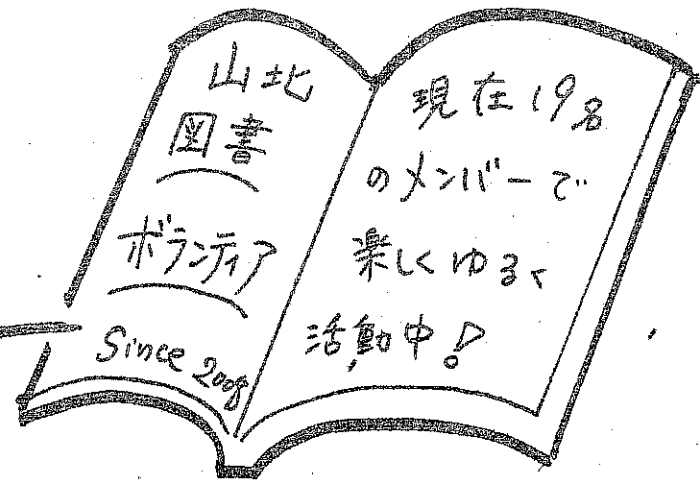 山北
図書
ボランティア
Since 2008
現在19名
のメンバーで
楽しくゆるく
活動中!